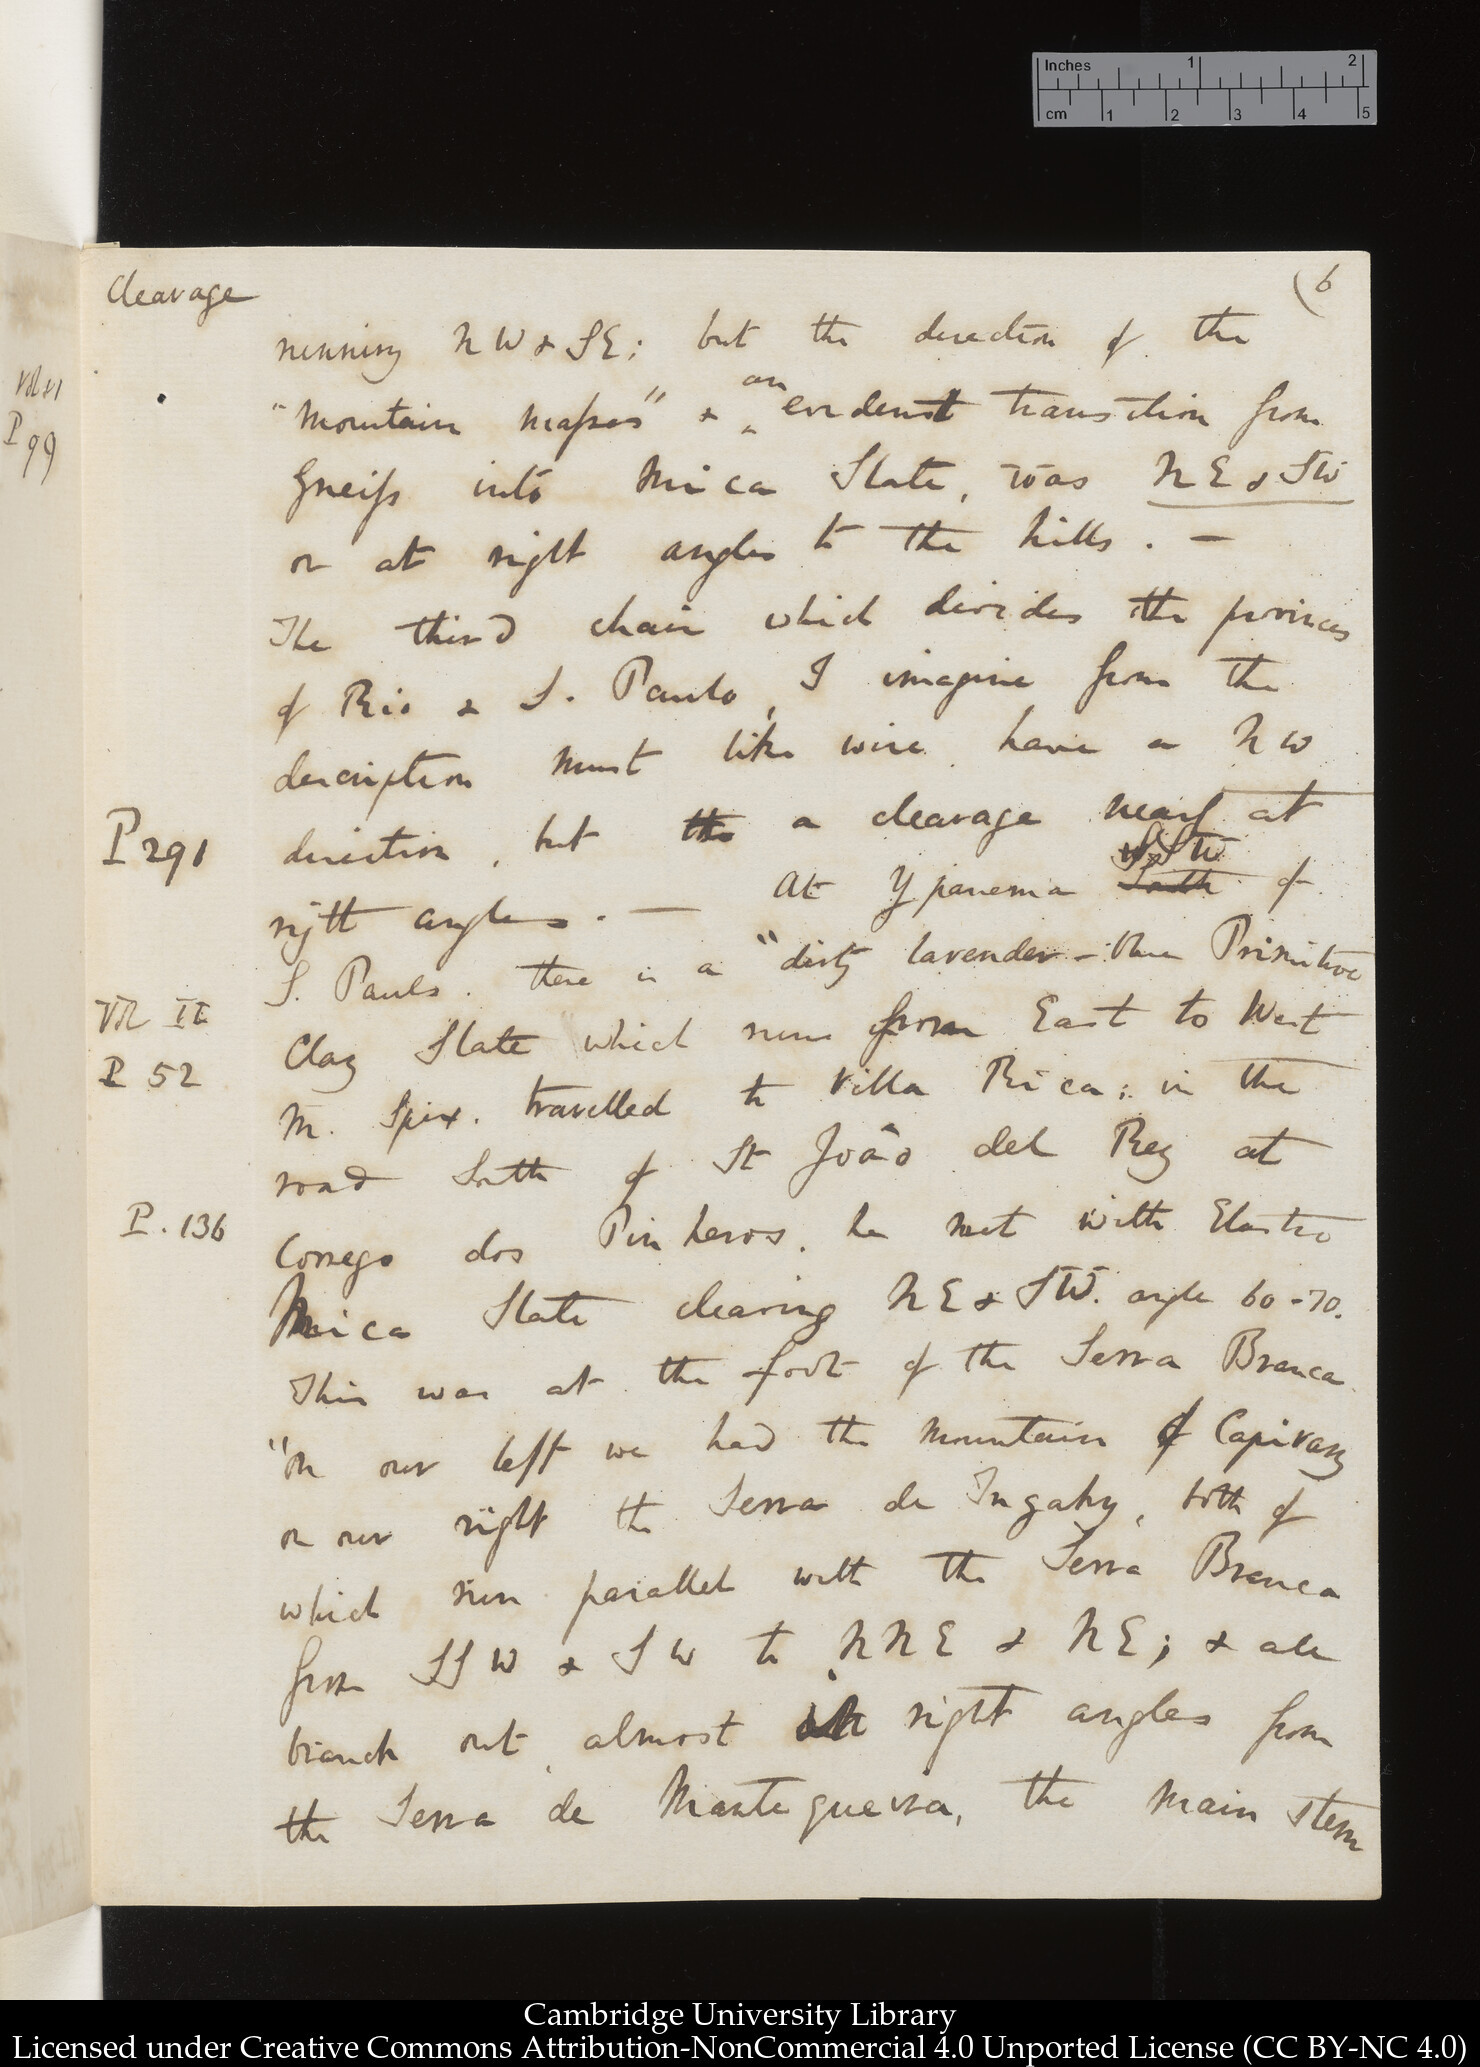 Inches 1 2
cm 1 2 3 4 5
Cleavage
(6
running NW & SE; but the direction of the
"mountain masses" & an evident transition from
Gneiss into Mica Slate, was NE & SW
or at right angles to the hills. —
The third chain which divides the provinces
of Rio & S. Paulo, I imagine from the
description must like wise have a NW
P 291
direction, but the a cleavage nearly at
right angles. — At Ypanema South SSW of
S. Pauls. there is a "dirty lavender-blue Primitive
Vol II
Clay Slate which runs from East to West
P 52
M. Spix. travelled to Villa Rica; in the
road South of St João del Rey at
P. 136
Corrego dos Pinheros. he met with Elastic
Mica Slate cleaving NE & SW. angle 60-70.
This was at the foot of the Serra Branca
"On our left we had the mountain of Capivary
on our right the Serra de Ingahy, both of
which run parallel with the Serra Branca
from SSW & SW to NNE & NE; & all
branch out, almost at right angles from
the Serra de Mantegueira, the main stem
P 99
Cambridge University Library
Licensed under Creative Commons Attribution-NonCommercial 4.0 Unported License (CC BY-NC 4.0)